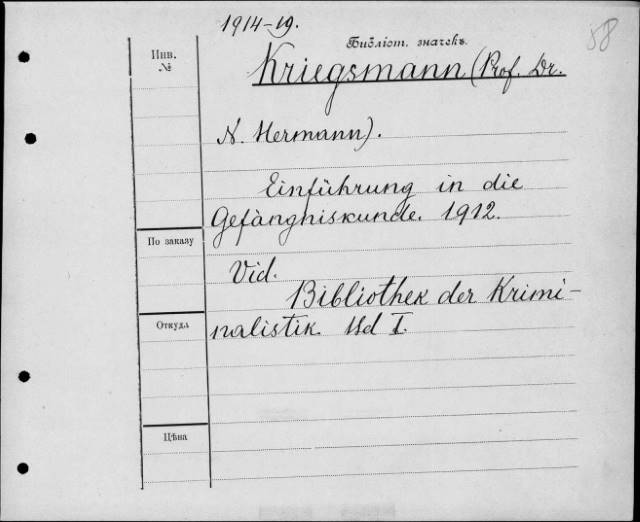 1914-19.
58
Библіот. значекъ.
Инв.
№
Kriegsmann (Prof. Dr.
N. Hermann).
Einführung in die
Gefängniskunde. 1912.
По заказу
Vid.
Bibliothek der Krimi-
nalistik. Bd I.
Откуда
Цѣна